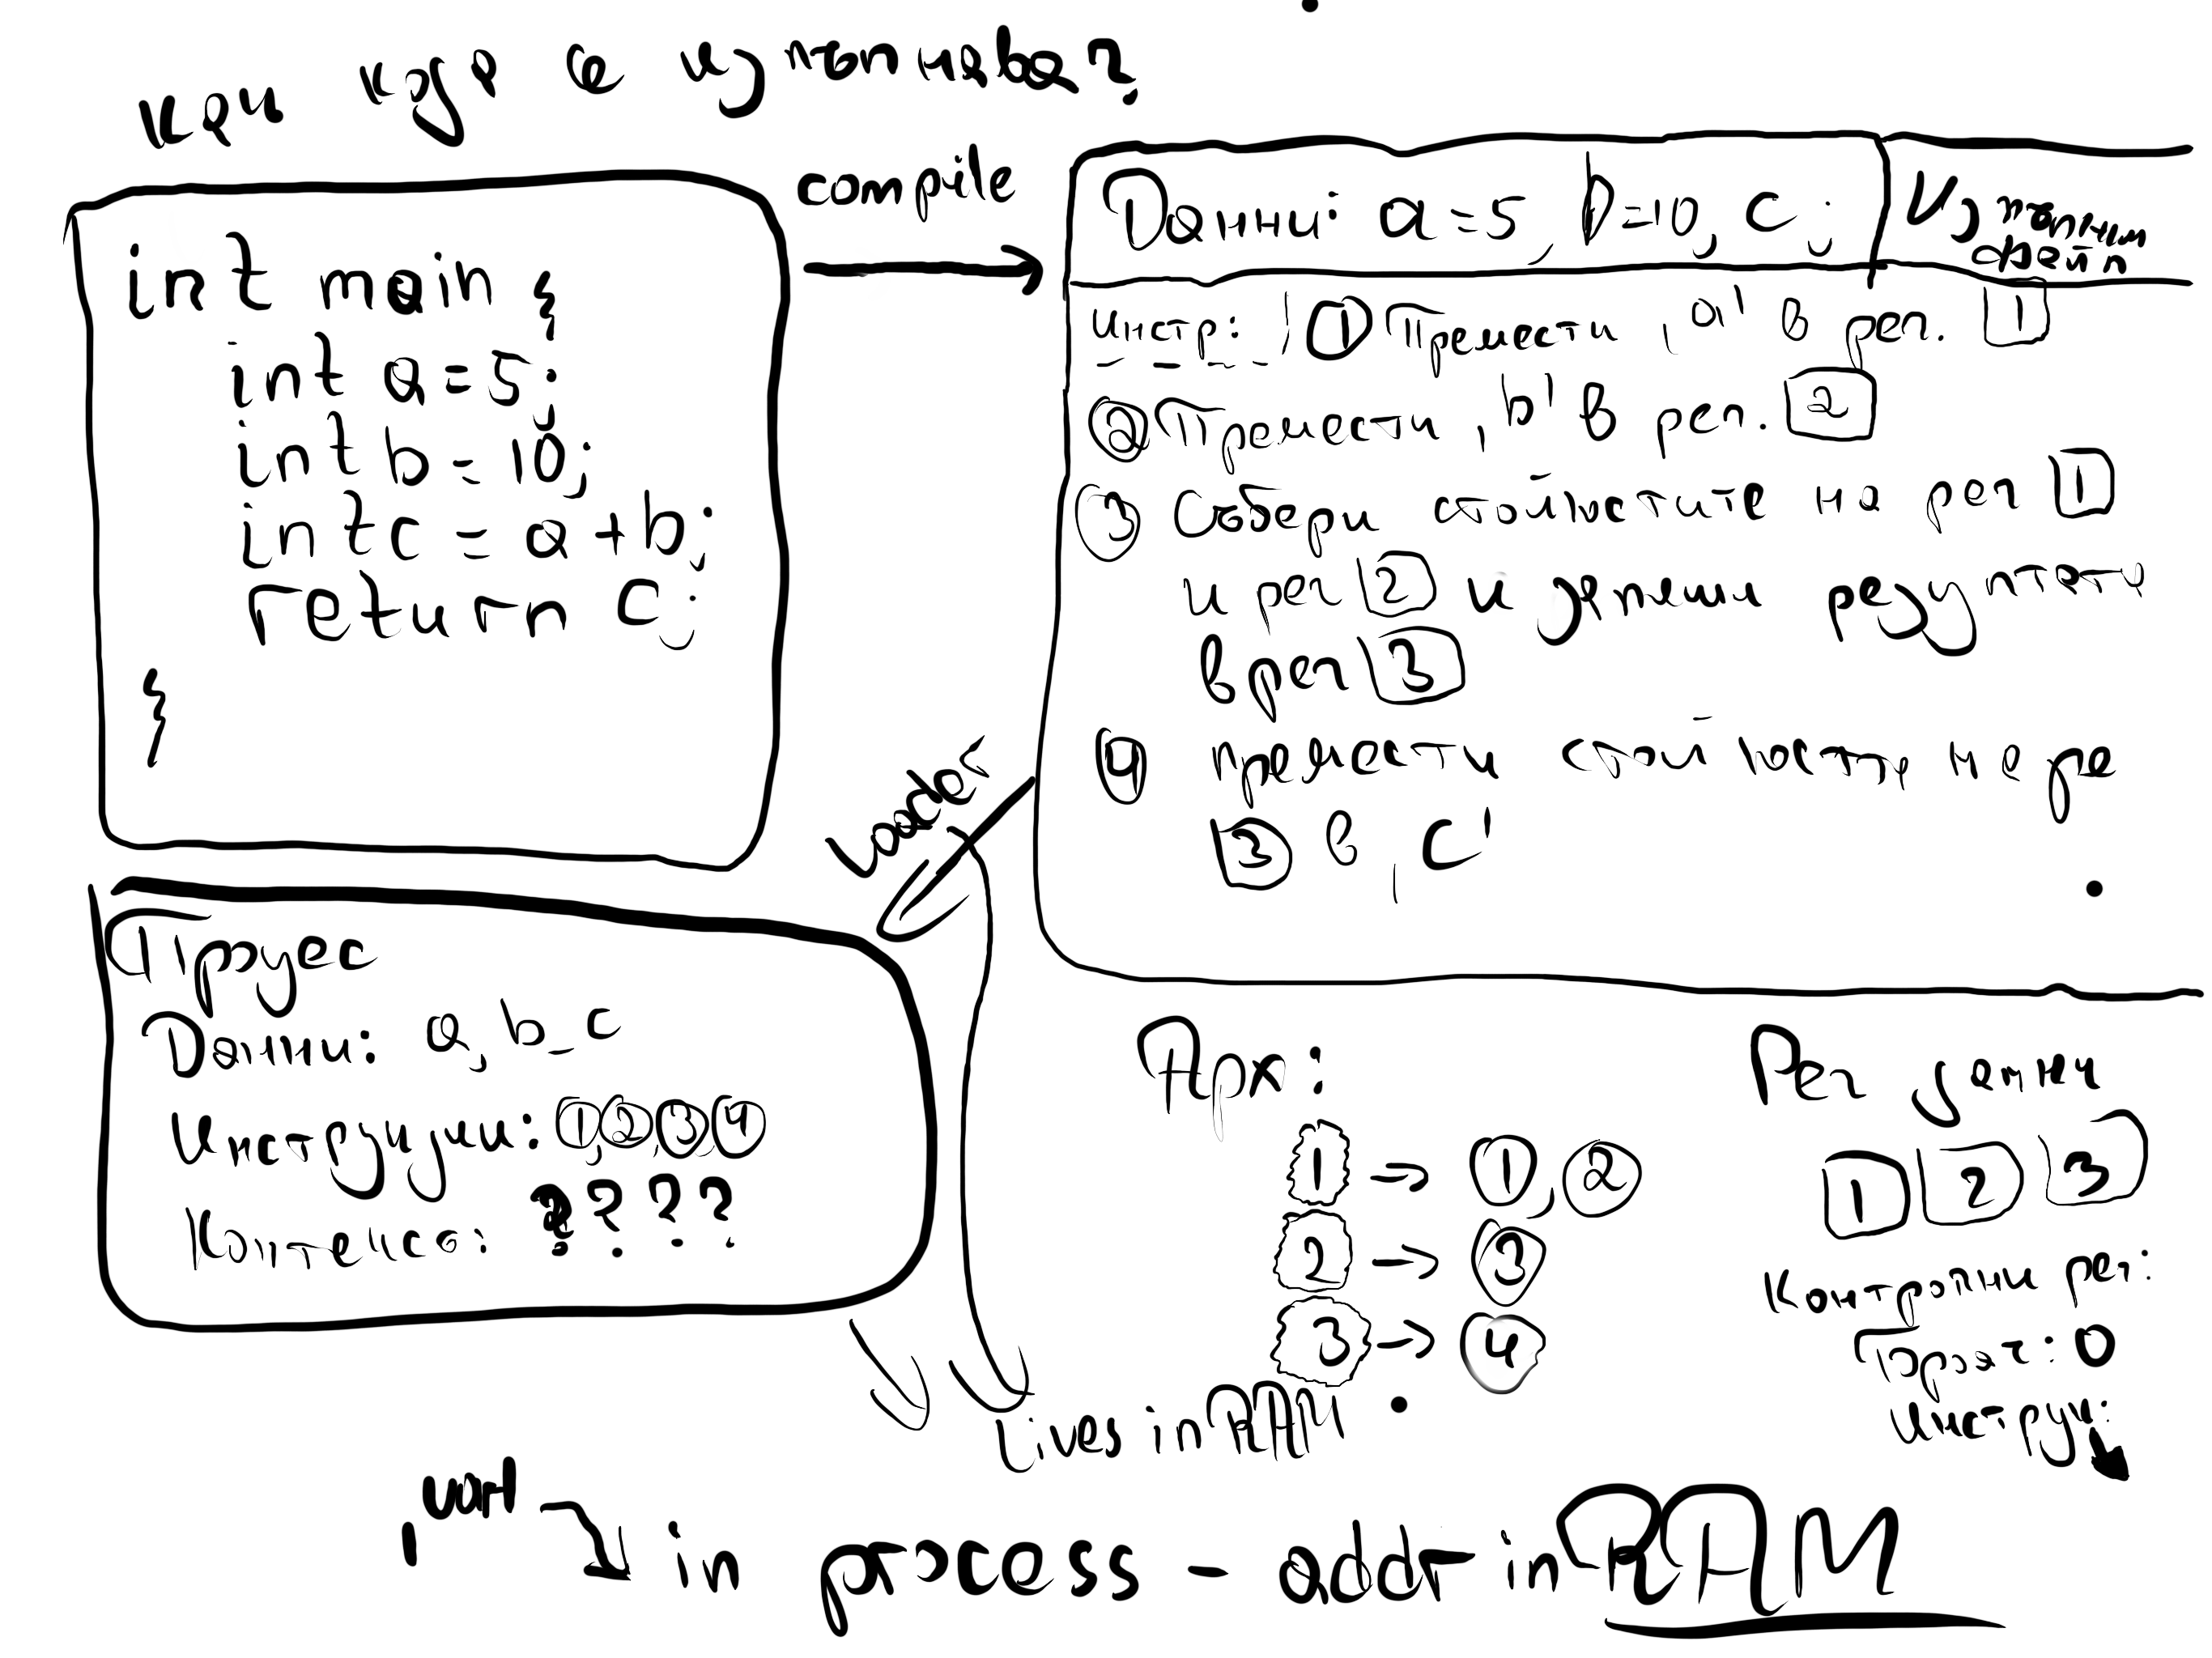 код е изпълнява?
compile
int main {
int a=5;
int b=10;
int c = a+b;
return c;
}
Данни: a=5, b=10, c;
Изпълним
файл
Инстр: ① Премести ‚a' в рег. 1
② Премести ‚b' в рег. 2
③ Събери стойностите на рег 1
и рег 2 и запиши резултата
в рег 3
④ премести стойността на ре
3 в ‚c'
Loader
Процес
Данни: a, b, c
Инструкции: ①, ②, ③, ④
Контекст: ? ? ? ?
Lives in RAM
Арх:
1 => ①, ②
2 => ③
3 -> ④
Рег
1 2 3
Контролни рег:
Брояч: 0
Инструк:
in process - addr in RAM